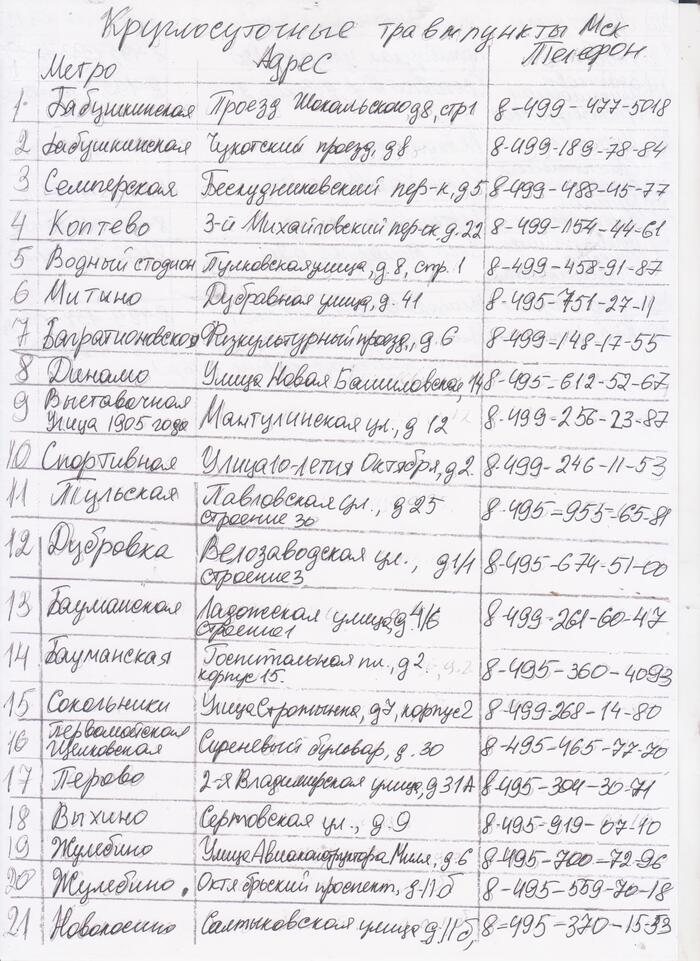 Круглосуточные травмпункты Мск
Метро Адрес Телефон
1 Бабушкинская Проезд Шокальского д8, стр1 8-499-477-5018
2 Бабушкинская Чукотский проезд, д8 8-499-189-78-84
3 Селигерская Бескудниковский пер-к, д5 8-499-488-45-77
4 Коптево 3-й Михайловский пер-ок д. 22 8-499-154-44-61
5 Водный стодион Пулковская улица, д. 8, стр. 1 8-499-458-91-87
6 Митино Дубравная улица, д. 41 8-495-751-27-11
7 Багратионовская Физкультурный проезд, д. 6 8-499-148-17-55
8 Динамо Улица Новая Башиловская, 14 8-495-612-52-67
9 Выставочная
Улица 1905 года Мантулинская ул., д 12 8-499-256-23-87
10 Спортивная Улица 10-летия Октября, д2. 8-499-246-11-53
11 Тульская Павловская ул., д 25 8-495-955-65-81
строение 30
12 Дубровка Велозаводская ул., д1/1 8-495-674-51-00
строение 3
13 Бауманская Ладожская улица, д. 4/6 8-499-261-60-47
строение 1
14 Бауманская Госпитальная пл., д2. 8-495-360-4093
корпус 15.
15 Сокольники Улица Стромынка, д7, корпус 2 8-499-268-14-80
16 Первомайская
Щелковская Сиреневый бульвар, д. 30 8-495-465-77-70
17 Перово 2-я Владимирская улица, д 31А 8-495-304-30-71
18 Выхино Сормовская ул., д. 9 8-495-919-07-10
19 Жулебино Улица Авиаконструктора Миля, д. 6 8-495-700-72-96
20 Жулебино. Октябрьский проспект, д-11б 8-495-559-70-18
21 Новокосино Салтыковская улица д. 11б, 8-495-370-15-53